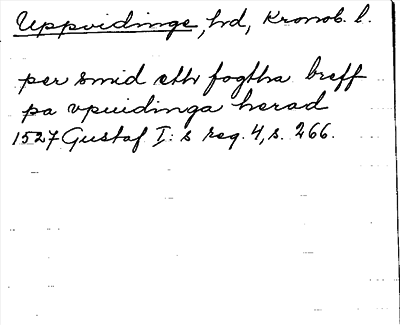 Uppvidinge, hd, Kronob. l.
per smid eth fogtha breff
pa vpuidinga herad
1527 Gustaf I: s reg. 4, s. 266.